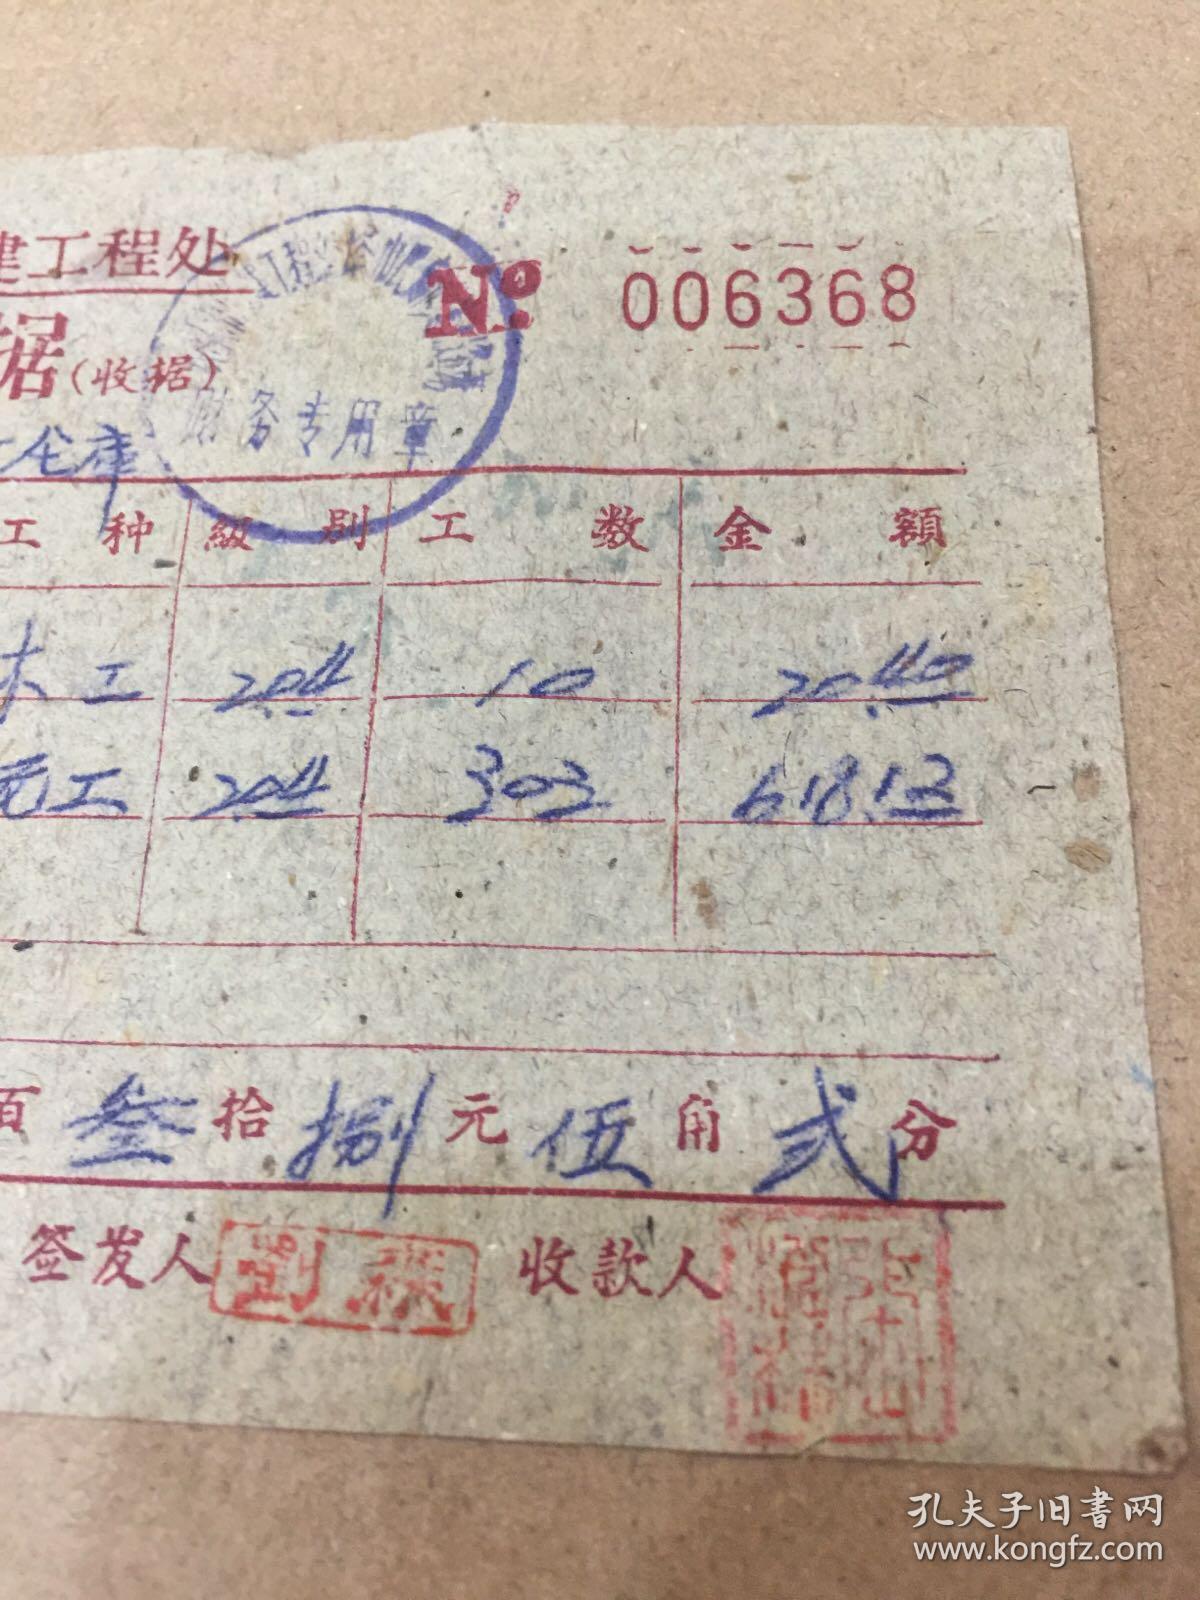 建工程处
№ 006368
据(收据)
财务专用章
仓库
工种 級別 工数 金額
木工 2.04 10 20.40
瓦工 2.04 303 618.13
百叁拾捌元伍角贰分
签发人 收款人
孔夫子旧书网
www.kongfz.com